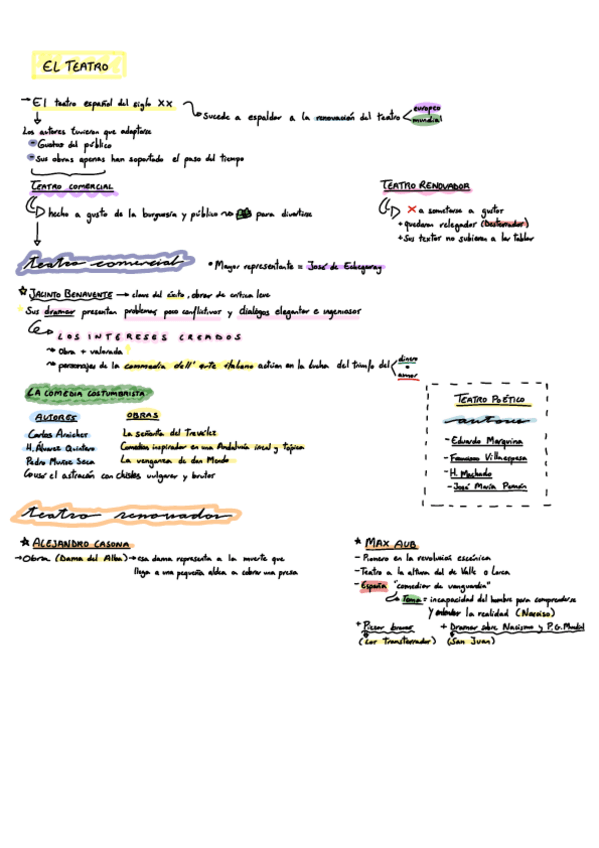 EL TEATRO
→ El teatro español del siglo XX
Sucede a espaldas a la renovación del teatro europeo
mundial
Los autores tuvieron que adaptarse
Gustos del público
Sus obras apenas han soportado el paso del tiempo
TEATRO COMERCIAL
hecho a gusto de la burguesía y público para divertirse
TEATRO RENOVADOR
X a someterse a gustos
+ quedaron relegados (Desterrados)
+ Sus textos no subieron a las tablas
teatro comercial
• Mayor representante = José de Echegaray
JACINTO BENAVENTE → clave del éxito, obras de crítica leve
Sus dramas presentan problemas poco conflictivos y diálogos elegantes e ingeniosos
LOS INTERESES CREADOS
Obra + valorada
personajes de la commedia dell' arte italiano actúan en la lucha del triunfo del dinero
amor
LA COMEDIA COSTUMBRISTA
AUTORES OBRAS
Carlos Arniches La señorita de Trevélez
H. Álvarez Quintero Comedias inspiradas en una Andalucía ideal y típica
Pedro Muñoz Seca La venganza de don Mendo
el astracán con chistes vulgares y brutos
TEATRO POÉTICO
autores
- Eduardo Marquina
- Francisco Villaespesa
- H. Machado
- José María Pemán
teatro renovador
ALEJANDRO CASONA
→ Obra (Dama del Alba) → esa dama representa a la muerte que
llega a una pequeña aldea a cobrar una presa
MAX AUB
- Pionero en la revolución escénica
- Teatro a la altura del de Valle o Lorca
- España "comedias de vanguardia"
Tema = incapacidad del hombre para comprenderse
y entender la realidad (Narciso)
+ Piezas breves
(Los transterrados)
+ Dramas sobre Nazismo y P.G. Mundial
(San Juan)